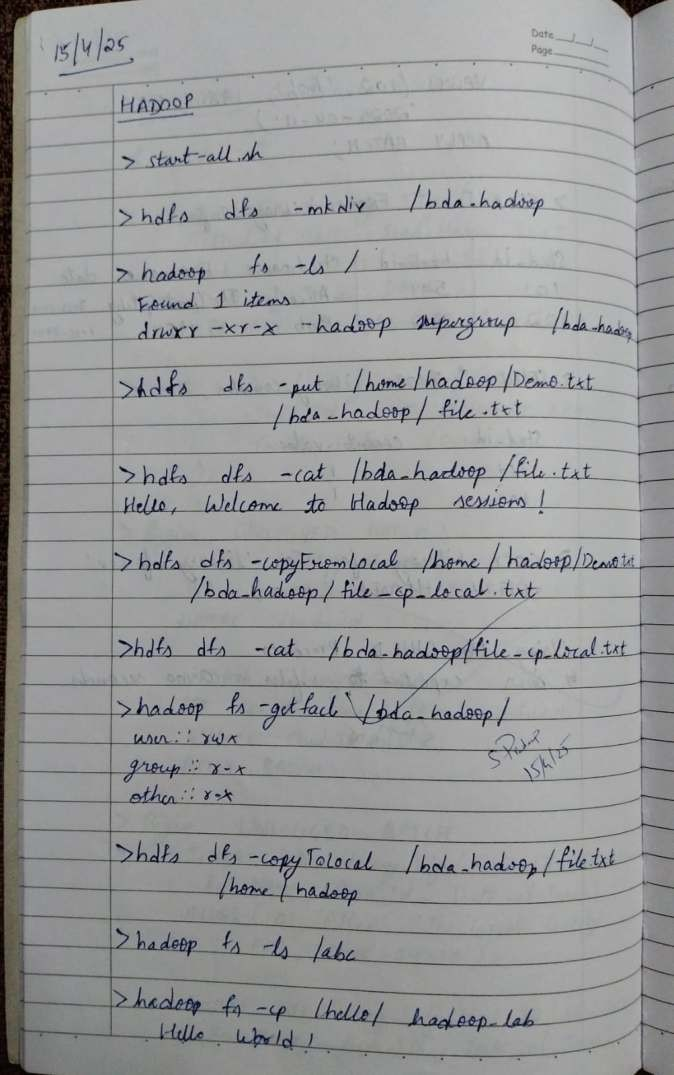 15/4/25
Date
Page
HADOOP
> start-all.sh
> hdfs dfs -mkdir /bda-hadoop
> hadoop fs -ls /
Found 1 items
drwxr -xr-x -hadoop supergroup /bda-hadoop
>hdfs dfs -put /home/hadoop/Demo.txt
/bda_hadoop/ file.txt
>hdfs dfs -cat /bda_hadoop /file.txt
Hello, Welcome to Hadoop sessions!
>hdfs dfs -copyFromLocal /home / hadoop/Demo.txt
/bda-hadoop/ file_cp_local.txt
>hdfs dfs -cat /bda-hadoop/file_cp_local.txt
>hadoop fs -getfacl /bda_hadoop/
user:: rwx
group:: r-x
other:: r-x
15/4/25
>hdfs dfs -copyToLocal /bda_hadoop/file.txt
/home/hadoop
>hadoop fs -ls /abc
>hadoop fs -cp /hello/ hadoop_lab
Hello World!